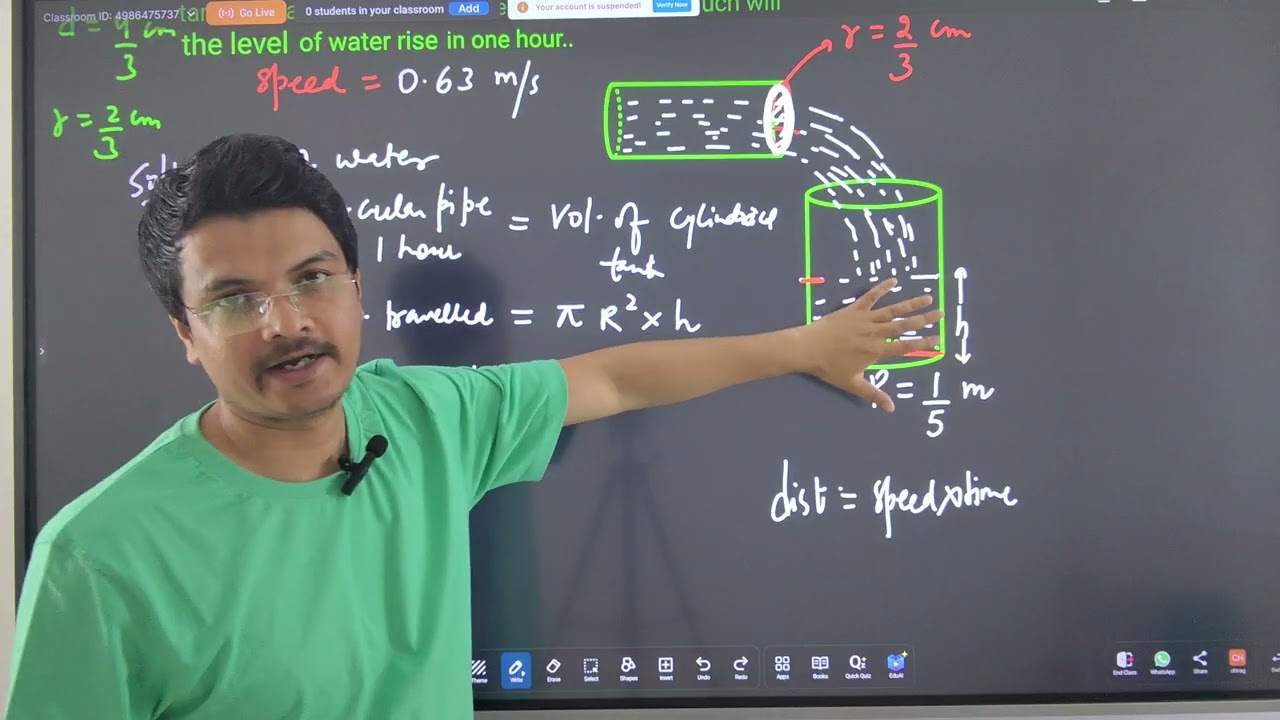 Classroom ID: 4986475737
Go Live
0 students in your classroom
Add
Your account is suspended!
Verify Now
will
the level of water rise in one hour..
d = 4/3 cm
speed = 0.63 m/s
r = 2/3 cm
r = 2/3 cm
water
cular pipe = Vol. of cylindrical
1 hour tank
travelled = π R² × h
h
R = 1/5 m
dist = speed × time
Theme
Write
Erase
Select
Shapes
Insert
Undo
Redo
Apps
Books
Quick Quiz
EduAI
End Class
WhatsApp
Share
chirag